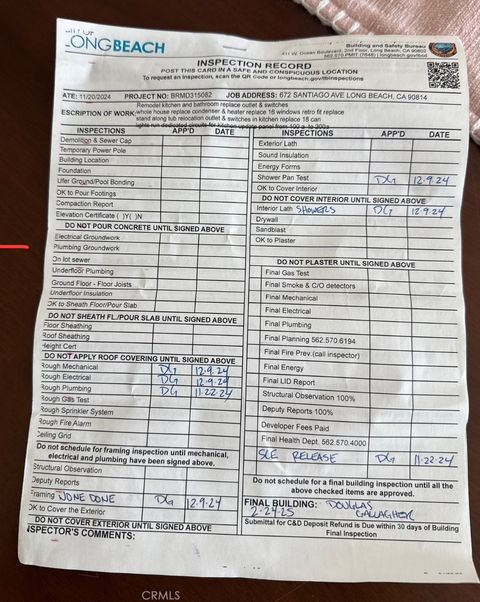 CITY OF
LONGBEACH
Building and Safety Bureau
411 W. Ocean Boulevard, 2nd Floor, Long Beach, CA 90802
562.570.PMIT (7648) | longbeach.gov/lbcd
INSPECTION RECORD
POST THIS CARD IN A SAFE AND CONSPICUOUS LOCATION
To request an inspection, scan the QR Code or longbeach.gov/lbinspections
ATE: 11/20/2024 PROJECT NO: BRMD315082 JOB ADDRESS: 672 SANTIAGO AVE LONG BEACH, CA 90814
ESCRIPTION OF WORK: Remodel kitchen and bathroom replace outlet & switches
whole house replace condenser & heater replace 16 windows retro fit replace
stand along tub relocation outlet & switches in kitchen replace 18 can
lights run dedicated circuits for kitchen update panel from 100 a to 200a
INSPECTIONS APP'D DATE
Demolition & Sewer Cap
Temporary Power Pole
Building Location
Foundation
Ufer Ground/Pool Bonding
OK to Pour Footings
Compaction Report
Elevation Certificate ( )Y( )N
DO NOT POUR CONCRETE UNTIL SIGNED ABOVE
Electrical Groundwork
Plumbing Groundwork
On lot sewer
Underfloor Plumbing
Ground Floor - Floor Joists
Underfloor Insulation
OK to Sheath Floor/Pour Slab
DO NOT SHEATH FL./POUR SLAB UNTIL SIGNED ABOVE
Floor Sheathing
Roof Sheathing
Height Cert
DO NOT APPLY ROOF COVERING UNTIL SIGNED ABOVE
Rough Mechanical DG 12.9.24
Rough Electrical DG 12.9.24
Rough Plumbing DG 11.22.24
Rough Gas Test
Rough Sprinkler System
Rough Fire Alarm
Ceiling Grid
Do not schedule for framing inspection until mechanical,
electrical and plumbing have been signed above.
Structural Observation
Deputy Reports
Framing NONE DONE DG 12.9.24
OK to Cover the Exterior
DO NOT COVER EXTERIOR UNTIL SIGNED ABOVE
INSPECTOR'S COMMENTS:
INSPECTIONS APP'D DATE
Exterior Lath
Sound Insulation
Energy Forms
Shower Pan Test DG 12.9.24
OK to Cover Interior
DO NOT COVER INTERIOR UNTIL SIGNED ABOVE
Interior Lath SHOWERS DG 12.9.24
Drywall
Sandblast
OK to Plaster
DO NOT PLASTER UNTIL SIGNED ABOVE
Final Gas Test
Final Smoke & C/O detectors
Final Mechanical
Final Electrical
Final Plumbing
Final Planning 562.570.6194
Final Fire Prev.(call inspector)
Final Energy
Final LID Report
Structural Observation 100%
Deputy Reports 100%
Developer Fees Paid
Final Health Dept. 562.570.4000
SCE RELEASE DG 11.22.24
Do not schedule for a final building inspection until all the
above checked items are approved.
FINAL BUILDING: DOUGLAS
2-24-25 GALLAGHER
Submittal for C&D Deposit Refund is Due within 30 days of Building
Final Inspection
CRMLS